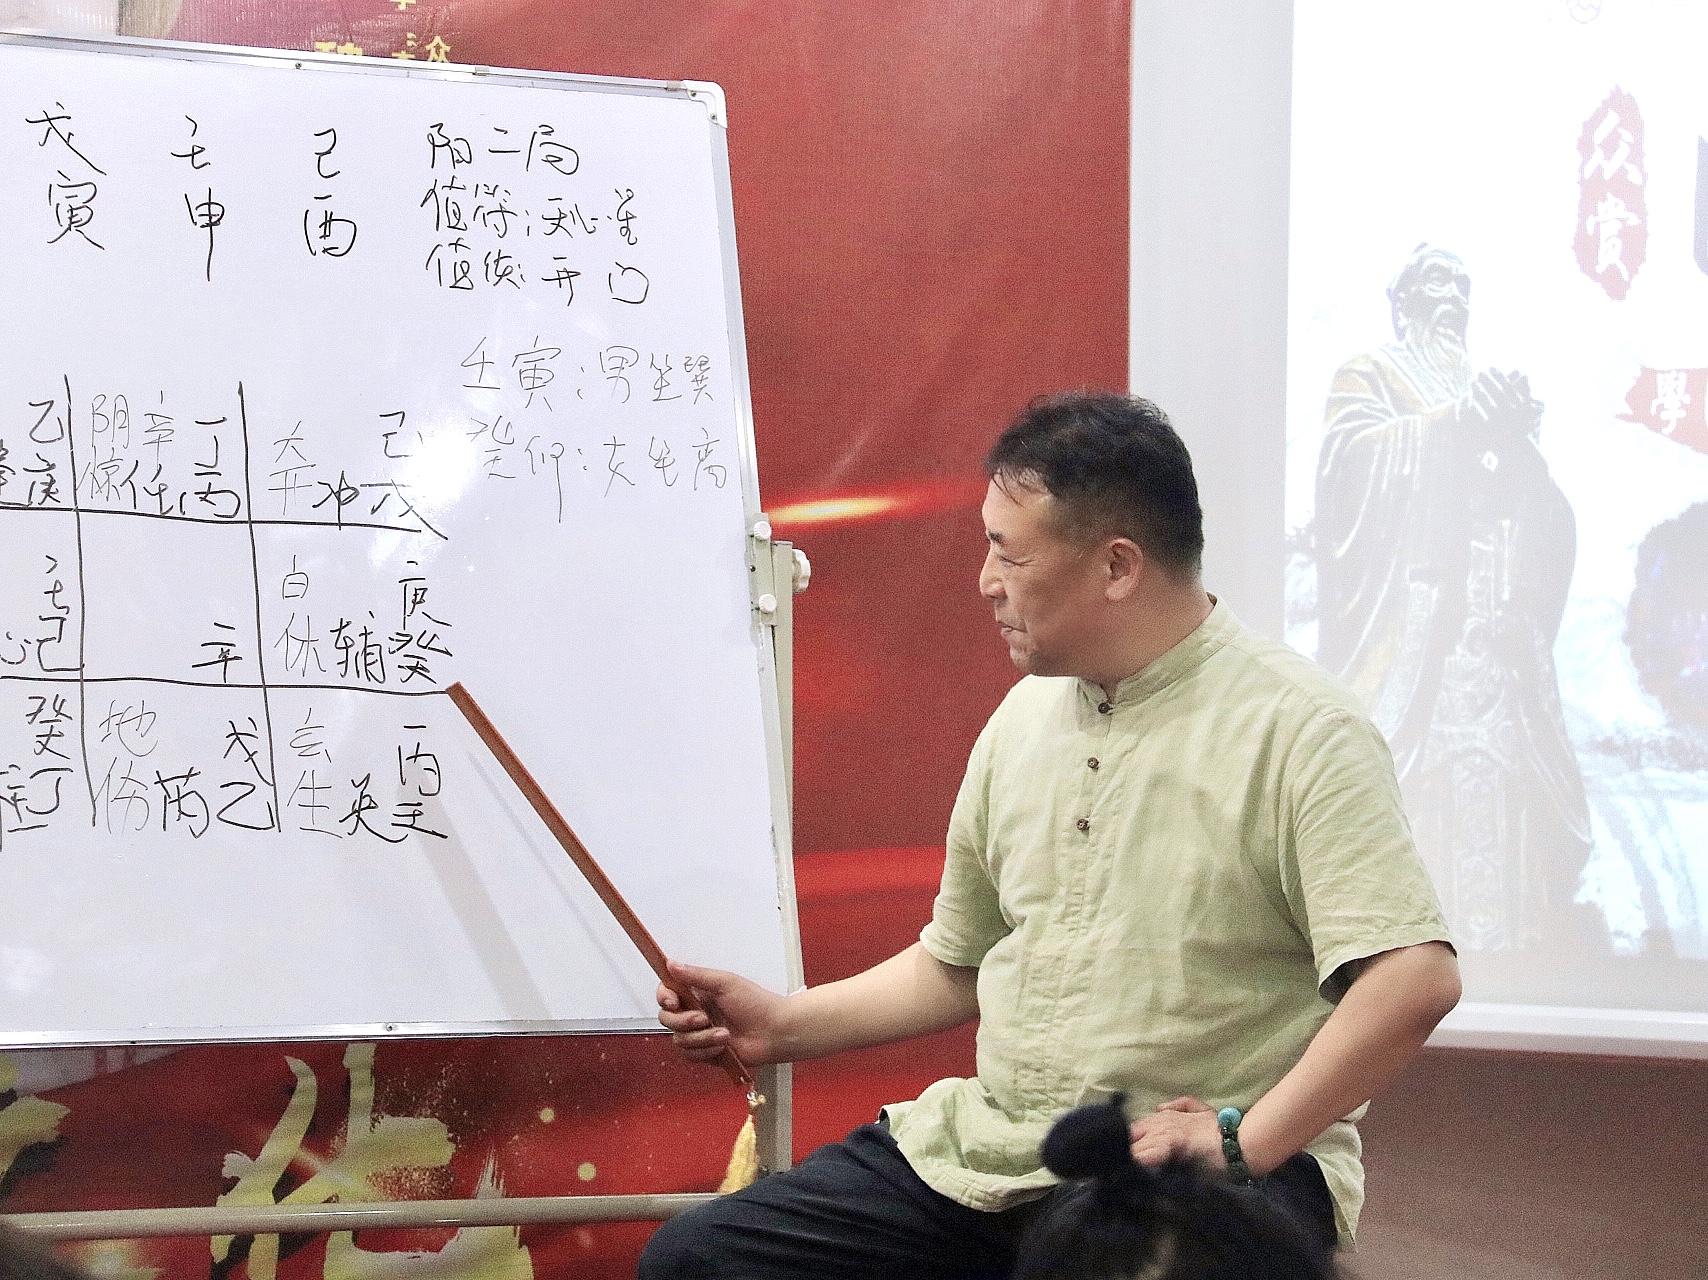 众
戊 壬 己 阳二局
寅 申 酉 值符:天心星
值使:开门
壬寅:男坐巽
癸卯:女坐离
乙 阴 辛 丁 六 己
蓬庚 惊任丙 开冲戊
壬 白 庚
心己 辛 休辅癸
癸 地 戊 玄 丙
柱丁 伤芮乙 生英壬
众赏
學